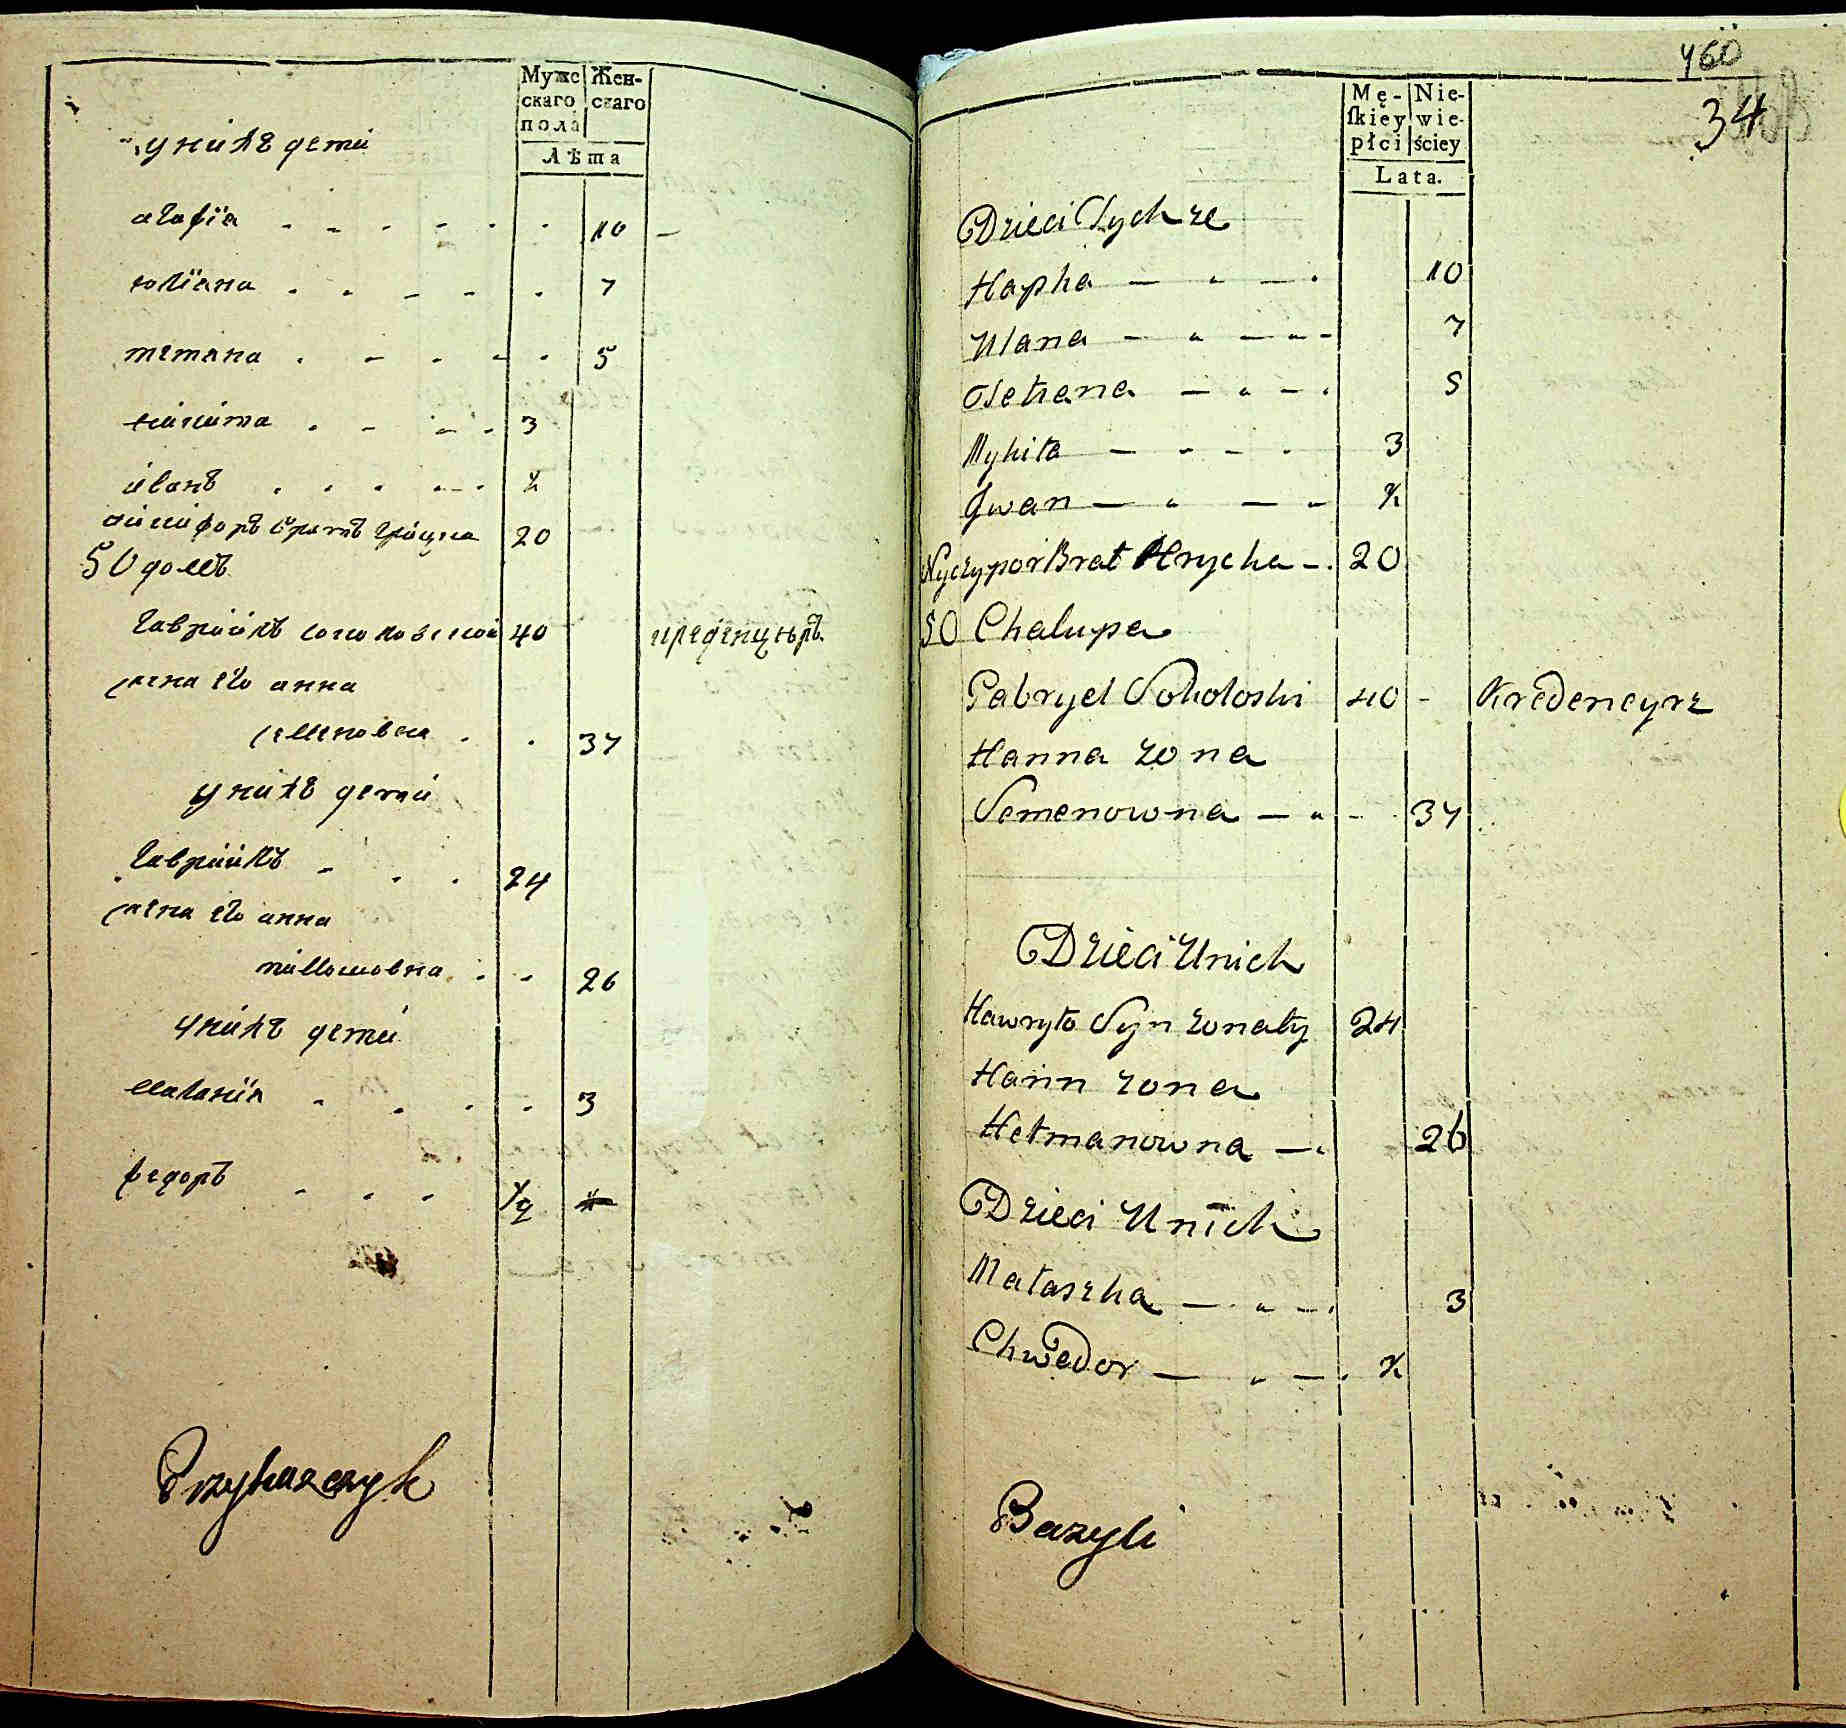 Мужс Жен-
скаго скаго
пола
Лѣта
у нихъ дети
агафїя 10
юлїана 7
тетяна 5
никита 3
иванъ ½
ничифоръ братъ грицка 20
50 домъ
гаврийлъ соколовский 40
жена его анна
семеновна 37
у нихъ дети
гаврийлъ 24
жена его анна
26
у нихъ дети
маланїя 3
федоръ 1/2
Przykaszczyk
460
34
Mę- Nie-
ſkiey wie-
płci ściey
Lata.
Dzieci Tychze
Hapka 10
Ulana 7
Tetiana 5
Mykita 3
Jwan ½
Nyczypor Brat Hrycka 20
50 Chalupa
Gabryel Sokoloski 40 Kredencyrz
Hanna zona
Semenowna 37
Dzieci Unich
Hawryło Syn zonaty 24
Hann zona
Hetmanowna 26
Dzieci Unich
Małaszka 3
Chwedor ½
Bazyli